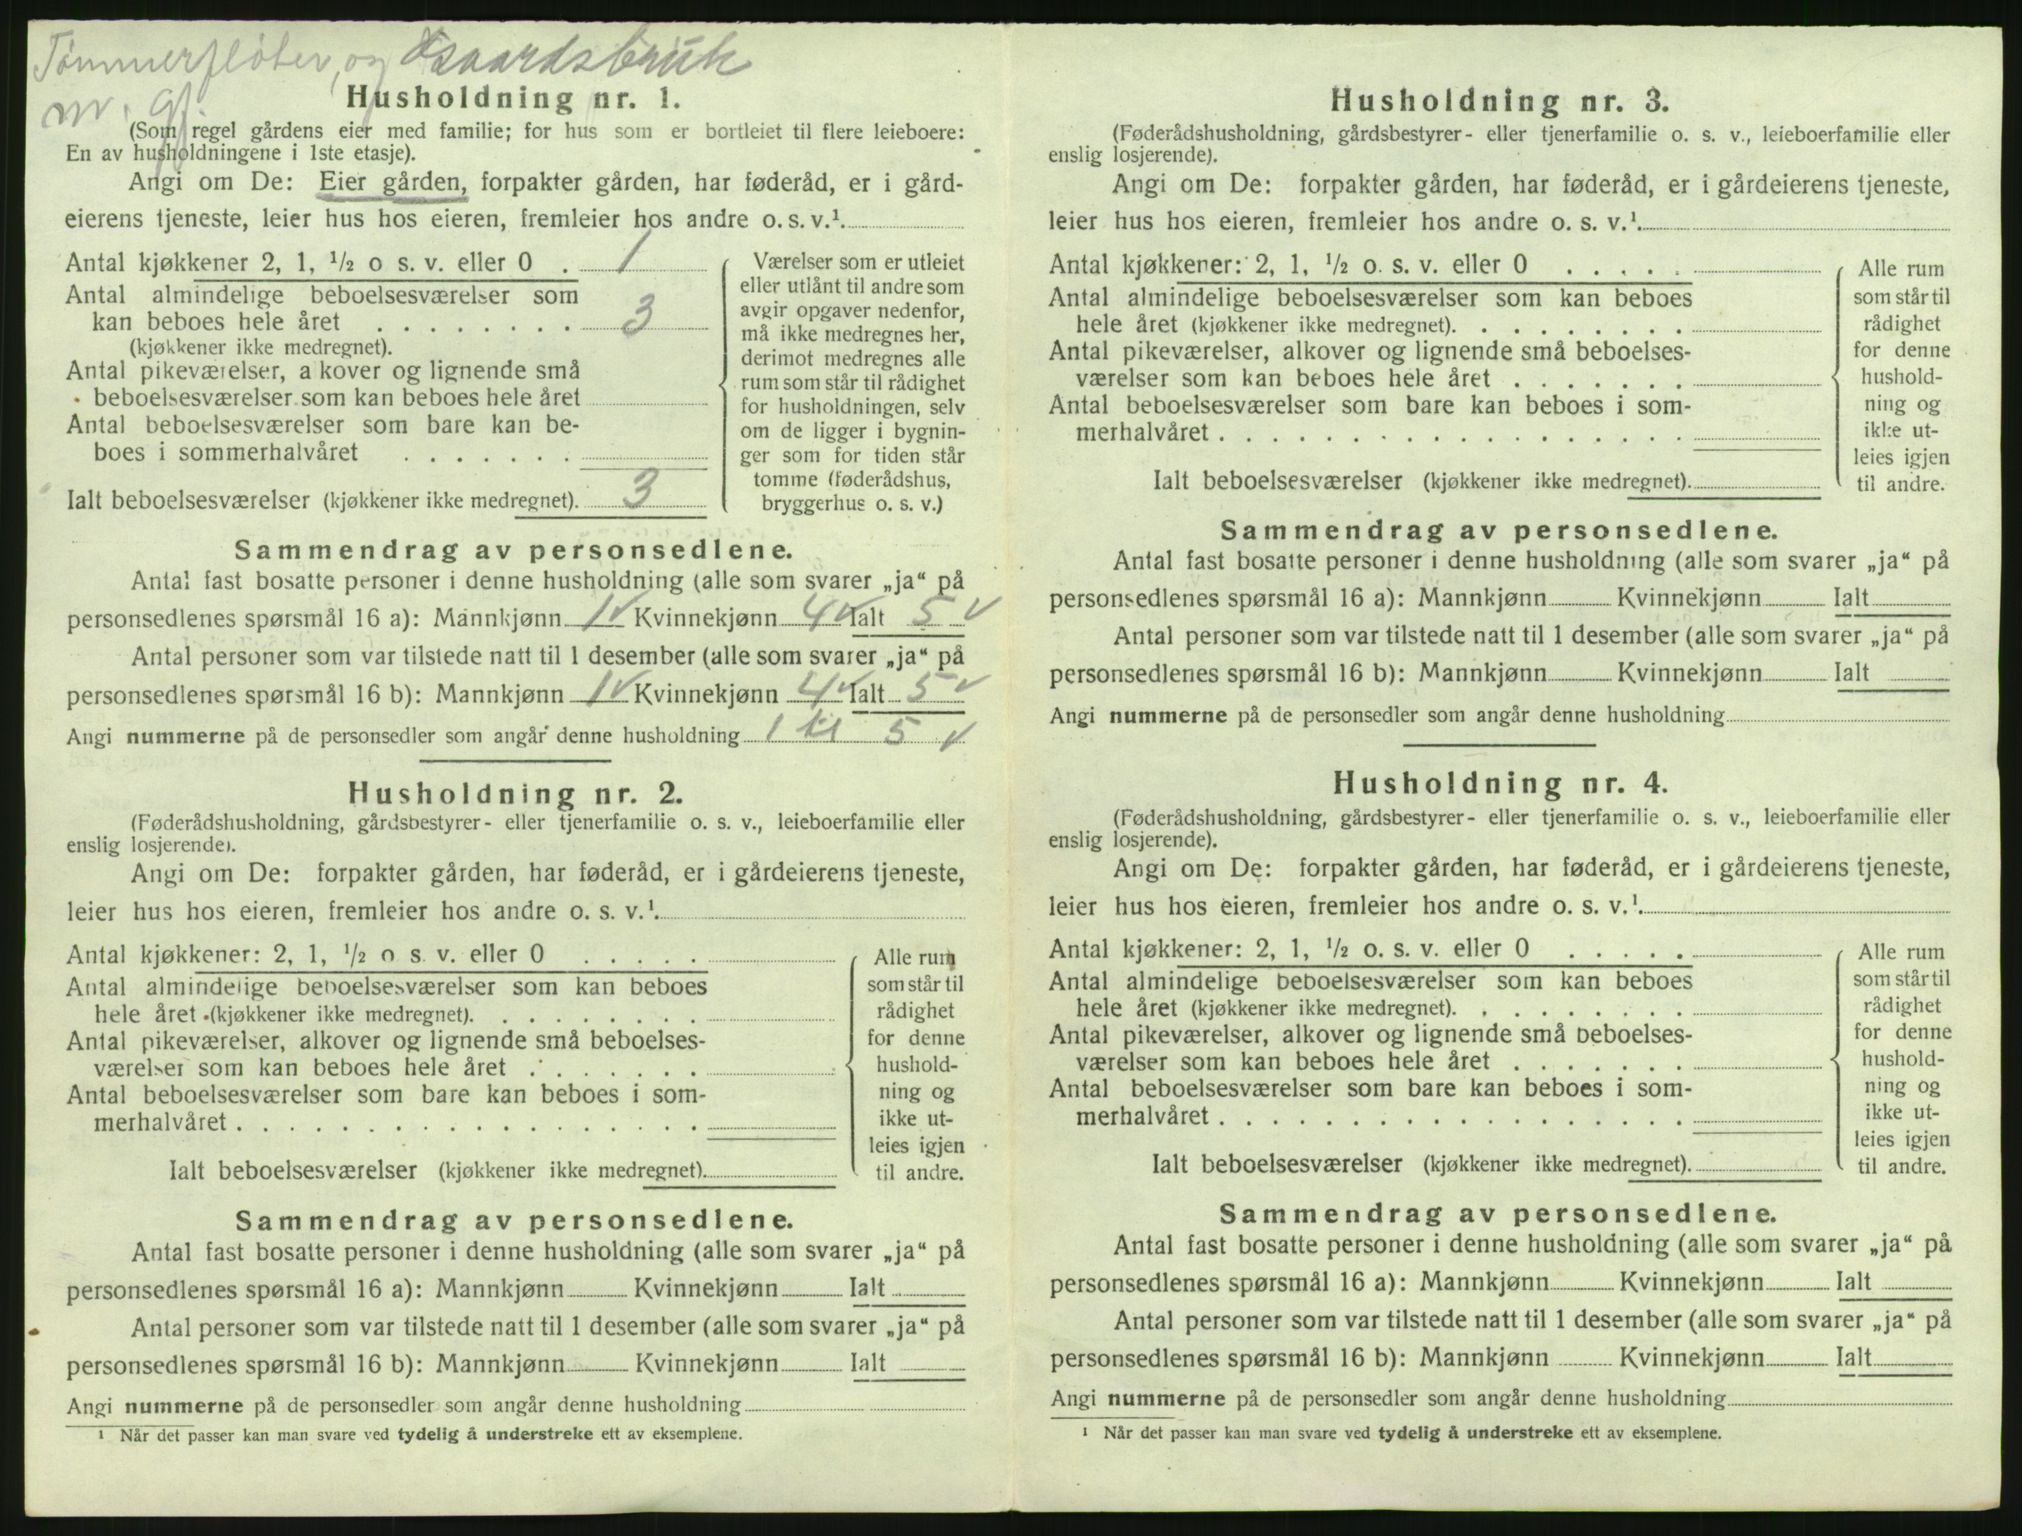 Tømmerfløter, og Gaardsbruk
m. gf.
Husholdning nr. 1.
(Som regel gårdens eier med familie; for hus som er bortleiet til flere leieboere:
En av husholdningene i 1ste etasje).
Angi om De: Eier gården, forpakter gården, har føderåd, er i gård-
eierens tjeneste, leier hus hos eieren, fremleier hos andre o. s. v.¹.
Antal kjøkkener 2, 1, ½ o s. v. eller 0 . 1
Antal almindelige beboelsesværelser som
kan beboes hele året . . . . . . . . 3
(kjøkkener ikke medregnet).
Antal pikeværelser, a kover og lignende små
beboelsesværelser som kan beboes hele året
Antal beboelsesværelser som bare kan be-
boes i sommerhalvåret . . . . . . .
Ialt beboelsesværelser (kjøkkener ikke medregnet). 3
Værelser som er utleiet
eller utlånt til andre som
avgir opgaver nedenfor,
må ikke medregnes her,
derimot medregnes alle
rum som står til rådighet
for husholdningen, selv
om de ligger i bygnin-
ger som for tiden står
tomme (føderådshus,
bryggerhus o. s. v.)
Sammendrag av personsedlene.
Antal fast bosatte personer i denne husholdning (alle som svarer „ja“ på
personsedlenes spørsmål 16 a): Mannkjønn 1 ✓ Kvinnekjønn 4 ✓ Ialt 5 ✓
Antal personer som var tilstede natt til 1 desember (alle som svarer „ja“ på
personsedlenes spørsmål 16 b): Mannkjønn 1 ✓ Kvinnekjønn 4 ✓ Ialt 5 ✓
Angi nummerne på de personsedler som angår denne husholdning 1 til 5 ✓
Husholdning nr. 2.
(Føderådshusholdning, gårdsbestyrer- eller tjenerfamilie o. s. v., leieboerfamilie eller
enslig losjerende).
Angi om De: forpakter gården, har føderåd, er i gårdeierens tjeneste,
leier hus hos eieren, fremleier hos andre o. s. v.¹.
Antal kjøkkener: 2, 1, ½ o s. v. eller 0 . . . . .
Antal almindelige beboelsesværelser som kan beboes
hele året (kjøkkener ikke medregnet). . . . . . . . .
Antal pikeværelser, alkover og lignende små beboelses-
værelser som kan beboes hele året . . . . . . .
Antal beboelsesværelser som bare kan beboes i som-
merhalvåret . . . . . . . . . . . . . . . . . .
Ialt beboelsesværelser (kjøkkener ikke medregnet).
Alle rum
som står til
rådighet
for denne
hushold-
ning og
ikke ut-
leies igjen
til andre.
Sammendrag av personsedlene.
Antal fast bosatte personer i denne husholdning (alle som svarer „ja“ på
personsedlenes spørsmål 16 a): Mannkjønn Kvinnekjønn Ialt
Antal personer som var tilstede natt til 1 desember (alle som svarer „ja“ på
personsedlenes spørsmål 16 b): Mannkjønn Kvinnekjønn Ialt
Angi nummerne på de personsedler som angår denne husholdning
¹ Når det passer kan man svare ved tydelig å understreke ett av eksemplene.
Husholdning nr. 3.
(Føderådshusholdning, gårdsbestyrer- eller tjenerfamilie o. s. v., leieboerfamilie eller
enslig losjerende).
Angi om De: forpakter gården, har føderåd, er i gårdeierens tjeneste,
leier hus hos eieren, fremleier hos andre o. s. v.¹.
Antal kjøkkener: 2, 1, ½ o. s. v. eller 0 . . . . .
Antal almindelige beboelsesværelser som kan beboes
hele året (kjøkkener ikke medregnet). . . . . . . . .
Antal pikeværelser, alkover og lignende små beboelses-
værelser som kan beboes hele året . . . . . . .
Antal beboelsesværelser som bare kan beboes i som-
merhalvåret . . . . . . . . . . . . . . . . . .
Ialt beboelsesværelser (kjøkkener ikke medregnet).
Alle rum
som står til
rådighet
for denne
hushold-
ning og
ikke ut-
leies igjen
til andre.
Sammendrag av personsedlene.
Antal fast bosatte personer i denne husholdning (alle som svarer „ja“ på
personsedlenes spørsmål 16 a): Mannkjønn Kvinnekjønn Ialt
Antal personer som var tilstede natt til 1 desember (alle som svarer „ja“ på
personsedlenes spørsmål 16 b): Mannkjønn Kvinnekjønn Ialt
Angi nummerne på de personsedler som angår denne husholdning
Husholdning nr. 4.
(Føderådshusholdning, gårdsbestyrer- eller tjenerfamilie o. s. v., leieboerfamilie eller
enslig losjerende).
Angi om De: forpakter gården, har føderåd, er i gårdeierens tjeneste,
leier hus hos eieren, fremleier hos andre o. s. v.¹.
Antal kjøkkener: 2, 1, ½ o. s. v. eller 0 . . . . .
Antal almindelige beboelsesværelser som kan beboes
hele året (kjøkkener ikke medregnet). . . . . . . . .
Antal pikeværelser, alkover og lignende små beboelses-
værelser som kan beboes hele året . . . . . . .
Antal beboelsesværelser som bare kan beboes i som-
merhalvåret . . . . . . . . . . . . . . . . . .
Ialt beboelsesværelser (kjøkkener ikke medregnet).
Alle rum
som står til
rådighet
for denne
hushold-
ning og
ikke ut-
leies igjen
til andre.
Sammendrag av personsedlene.
Antal fast bosatte personer i denne husholdning (alle som svarer „ja“ på
personsedlenes spørsmål 16 a): Mannkjønn Kvinnekjønn Ialt
Antal personer som var tilstede natt til 1 desember (alle som svarer „ja“ på
personsedlenes spørsmål 16 b): Mannkjønn Kvinnekjønn Ialt
Angi nummerne på de personsedler som angår denne husholdning
¹ Når det passer kan man svare ved tydelig å understreke ett av eksemplene.